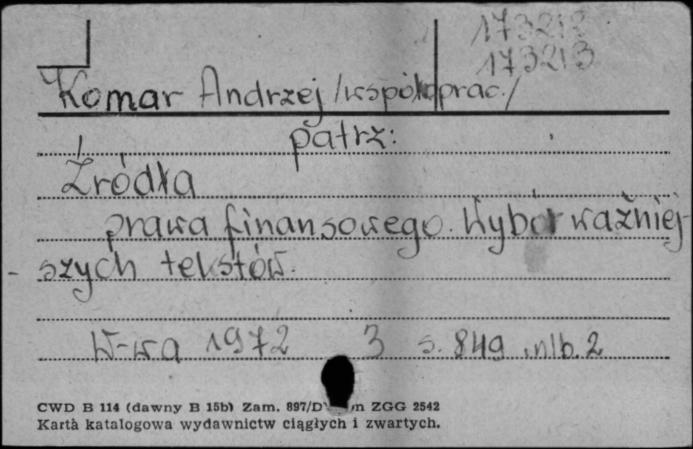 173212
173213
Komar Andrzej /współoprac./
patrz:
Źródła
prawa finansowego. Wybór ważniej-
szych tekstów.
W-wa 1972 3 s. 849 nlb. 2
CWD B 114 (dawny B 15b) Zam. 897/D ZGG 2542
Karta katalogowa wydawnictw ciągłych i zwartych.